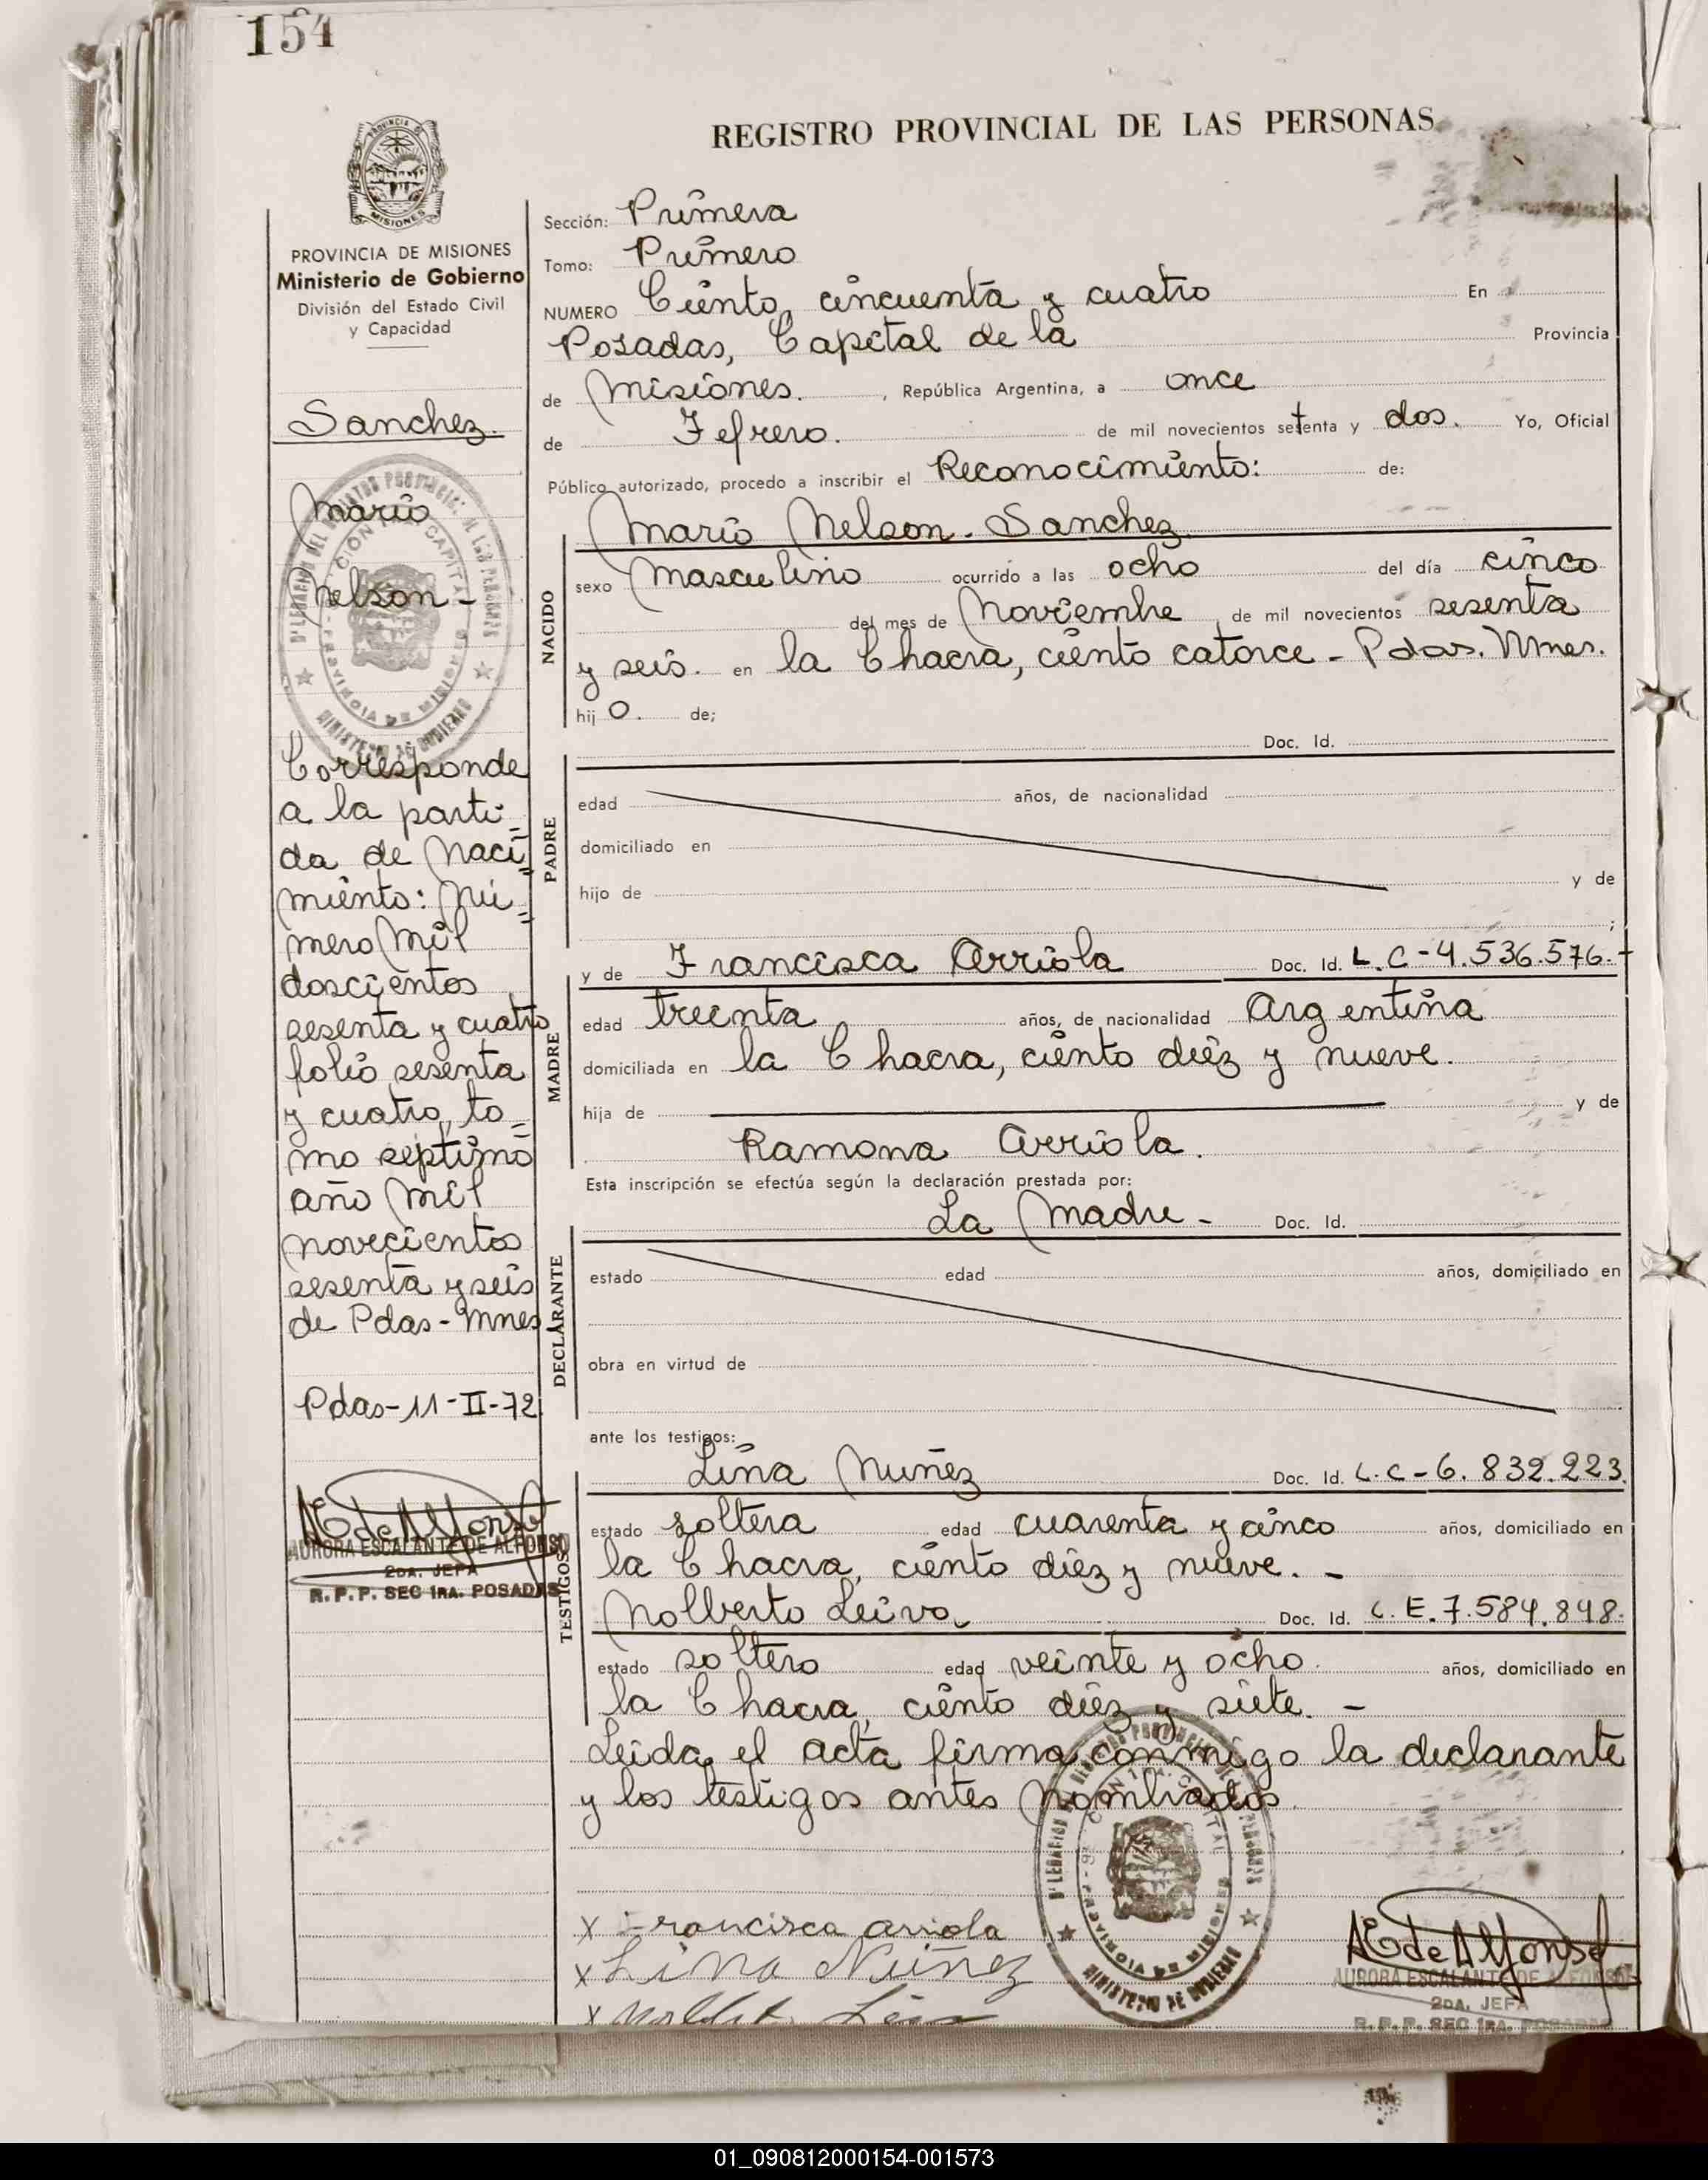 154
REGISTRO PROVINCIAL DE LAS PERSONAS
PROVINCIA DE MISIONES
Ministerio de Gobierno
División del Estado Civil
y Capacidad
Sanchez.
Mario
Nelson -
Corresponde
a la parti=
da de Naci=
miento: Nú=
mero Mil
doscientos
sesenta y cuatro
folio sesenta
y cuatro, to=
mo septimo
año Mil
novecientos
sesenta y seis
de Pdas - Mnes
Pdas - 11 - II - 72.
AE de Alfonso
AURORA ESCALANTE DE ALFONSO
2DA. JEFA
R. P. P. SEC 1RA. POSADAS
Sección: Primera
Tomo: Primero
NUMERO Ciento cincuenta y cuatro En
Posadas, Capital de la Provincia
de Misiones. , República Argentina, a once
de Febrero. de mil novecientos setenta y dos. Yo, Oficial
Público autorizado, procedo a inscribir el Reconocimiento: de:
Mario Nelson - Sanchez
NACIDO
sexo Masculino ocurrido a las ocho del día cinco
del mes de Noviembre, de mil novecientos sesenta
y seis. en la Chacra, ciento catorce - Pdas. Mnes.
hij o. de;
Doc. Id.
PADRE
edad años, de nacionalidad
domiciliado en
hijo de y de
;
MADRE
y de Francisca Arriola Doc. Id. L.C - 4.536.576. -
edad treinta años, de nacionalidad Argentina
domiciliada en la Chacra, ciento diéz y nueve.
hija de y de
Ramona Arriola.
Esta inscripción se efectúa según la declaración prestada por:
La Madre - Doc. Id.
DECLARANTE
estado edad años, domiciliado en
obra en virtud de
ante los testigos:
TESTIGOS
Lina Nuñez Doc. Id. L.C - 6.832.223.
estado soltera edad cuarenta y cinco años, domiciliado en
la Chacra, ciento diéz y nueve. -
Nolberto Leiva Doc. Id. L.E. 7.584.848.
estado soltero edad veinte y ocho. años, domiciliado en
la Chacra, ciento diéz y siete. -
Leida el acta firma conmigo la declarante
y los testigos antes nombrados.
x Francisca Arriola
x Lina Nuñez
AE de Alfonso
AURORA ESCALANTE DE ALFONSO
2DA. JEFA
R. P. P. SEC 1RA. POSADAS
01_090812000154-001573